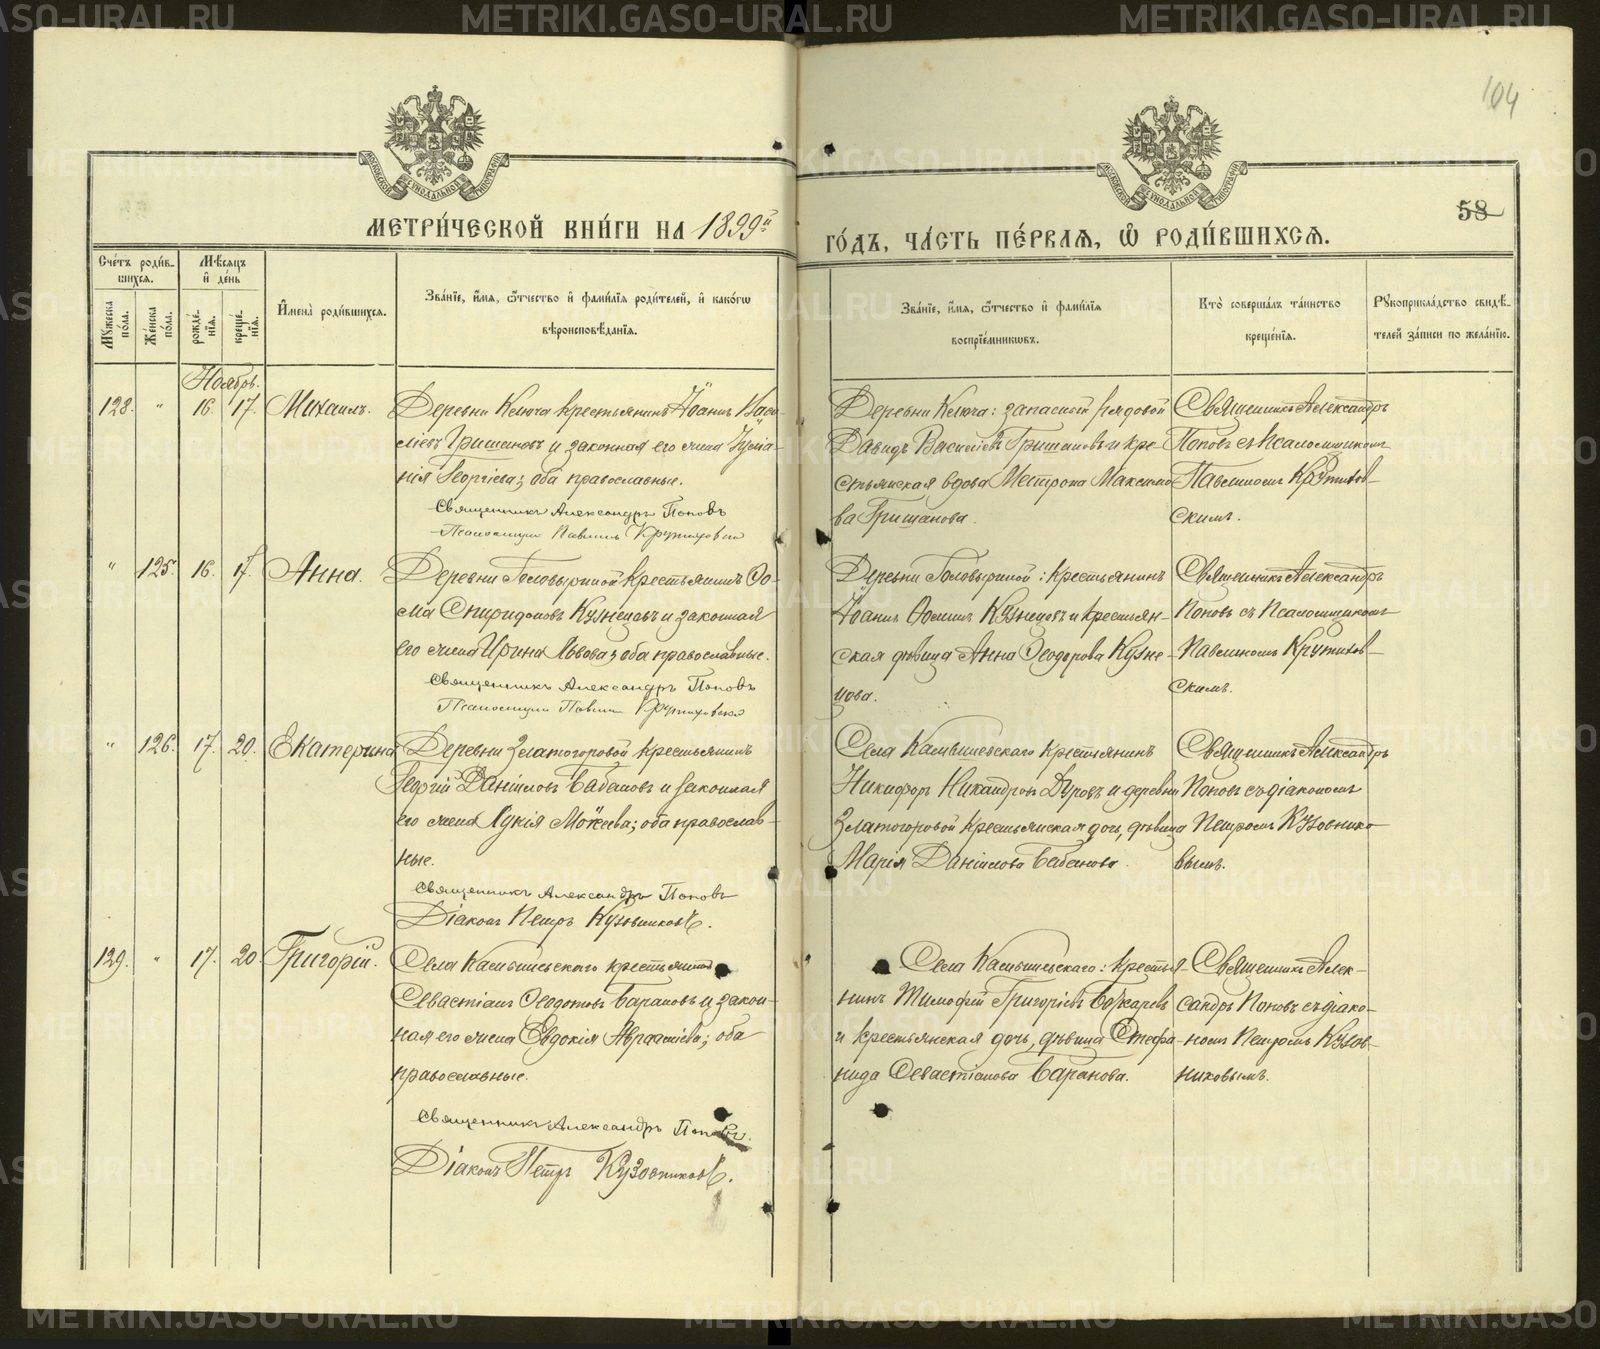 104
58
МЕТРИ́ЧЕСКОЙ КНИ́ГИ НА 1899й
ГО́ДЪ, ЧА́СТЬ ПЕ́РВАЯ, Ѽ РОДИ́ВШИХСЯ.
Сче́тъ роди́вшихся.
Мꙋ́жеска по́ла.
Же́нска по́ла.
Мѣ́сяцъ и҆ де́нь
рожде́нїя.
креще́нїя.
И҆мена̀ роди́вшихся.
Зва́нїе, и҆́мя, ѻ҆́тчество и҆ фами́лїя роди́телей, и҆ како́гѡ
вѣроисповѣ́данїя.
Зва́нїе, и҆́мя, ѻ҆́тчество и҆ фами́лїя
воспрїе́мникѡвъ.
Кто̀ соверша́лъ та́инство
креще́нїя.
Рꙋкоприкла́дство свидѣ́-
телей за́писи по жела́нїю.
Ноябрь.
128. " 16. 17. Михаилъ.
Деревни Ключа крестьянинъ Іоаннъ Васи-
ліевъ Гришановъ и законная его жена
нія Георгіева; оба православные.
Священникъ Александръ Поповъ
Псаломщикъ Павлинъ Крутиховскій
Деревни Ключа: запасной рядовой
Давидъ Василіевъ Гришановъ и кре-
стьянская вдова Матрона Максимо-
ва Гришанова.
Священникъ Александръ
Поповъ съ псаломщикомъ
Павлиномъ Крутихов-
скимъ.
" 125. 16. 17. Анна.
Деревни Головыриной крестьянинъ Ѳо-
ма Спиридоновъ Кузнецовъ и законная
его жена Ирина Львова; оба православные.
Священникъ Александръ Поповъ
Псаломщикъ Павлинъ Крутиховскій
Деревни Головыриной: крестьянинъ
Іоаннъ Ѳоминъ Кузнецовъ и крестьян-
ская дѣвица Анна Ѳеодорова Кузне-
цова.
Священникъ Александръ
Поповъ съ псаломщикомъ
Павлиномъ Крутихов-
скимъ.
" 126. 17. 20. Екатерина
Деревни Златогоровой крестьянинъ
Георгій Даніиловъ Бабановъ и законная
его жена Лукія Мокеева; оба православ-
ные.
Священникъ Александръ Поповъ
Діаконъ Петръ Кузовниковъ.
Села Камышевскаго крестьянинъ
Никифоръ Никандровъ Дуровъ и деревни
Златогоровой крестьянская дочь, дѣвица
Марія Даніилова Бабанова.
Священникъ Александръ
Поповъ съ діакономъ
Петромъ Кузовнико-
вымъ.
129. " 17. 20 Григорій.
Села Камышевскаго крестьянинъ
Севастіанъ Ѳеодотовъ Барановъ и закон-
ная его жена Евдокія; оба
православные.
Священникъ Александръ Поповъ.
Діаконъ Петръ Кузовниковъ.
Села Камышевскаго: крестья-
нинъ Тимофей Григоріевъ Бочкаревъ
и крестьянская дочь, дѣвица Стефа-
нида Севастіанова Баранова.
Священникъ Алек-
сандръ Поповъ съ діако-
номъ Петромъ Кузов-
никовымъ.
METRIKI.GASO-URAL.RU